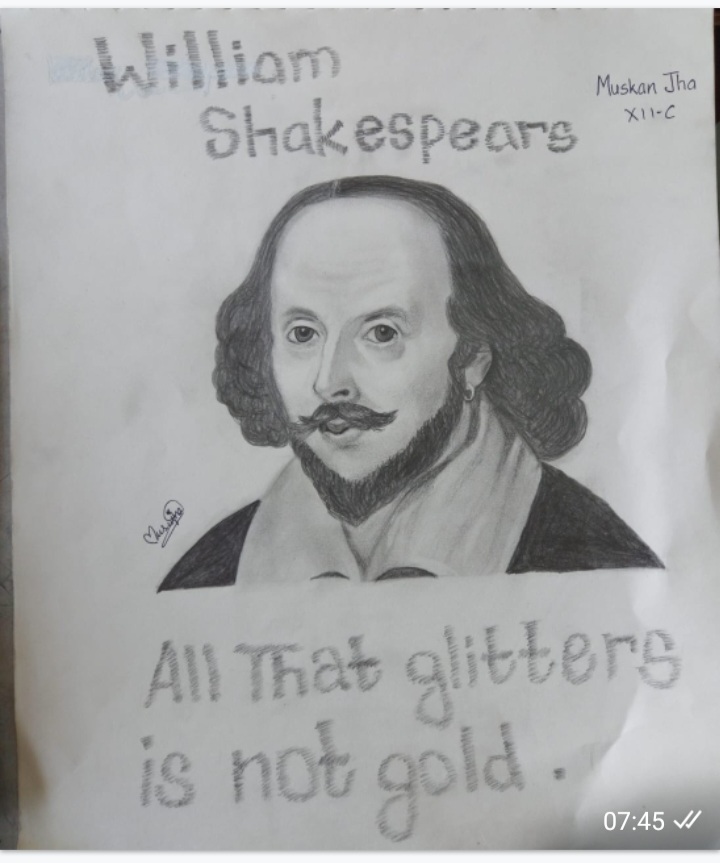 William
Shakespears
Muskan Jha
XII-C
All That glitters
is not gold.
07:45